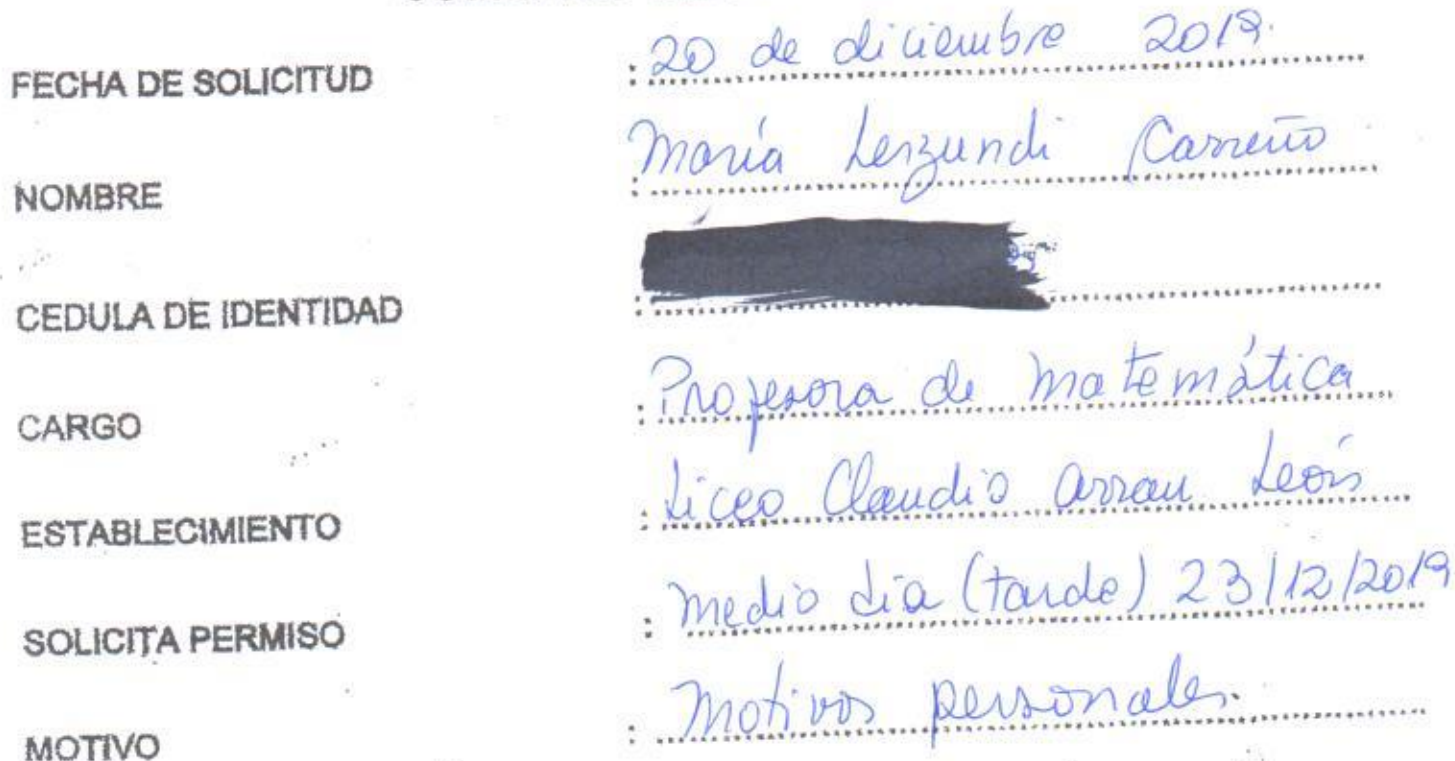 FECHA DE SOLICITUD : 20 de diciembre 2019.
NOMBRE : María Lerzundi Carreño
CEDULA DE IDENTIDAD :
CARGO : Profesora de Matemática
ESTABLECIMIENTO : Liceo Claudio Arrau León
SOLICITA PERMISO : Medio día (tarde) 23/12/2019
MOTIVO : Motivos personales.